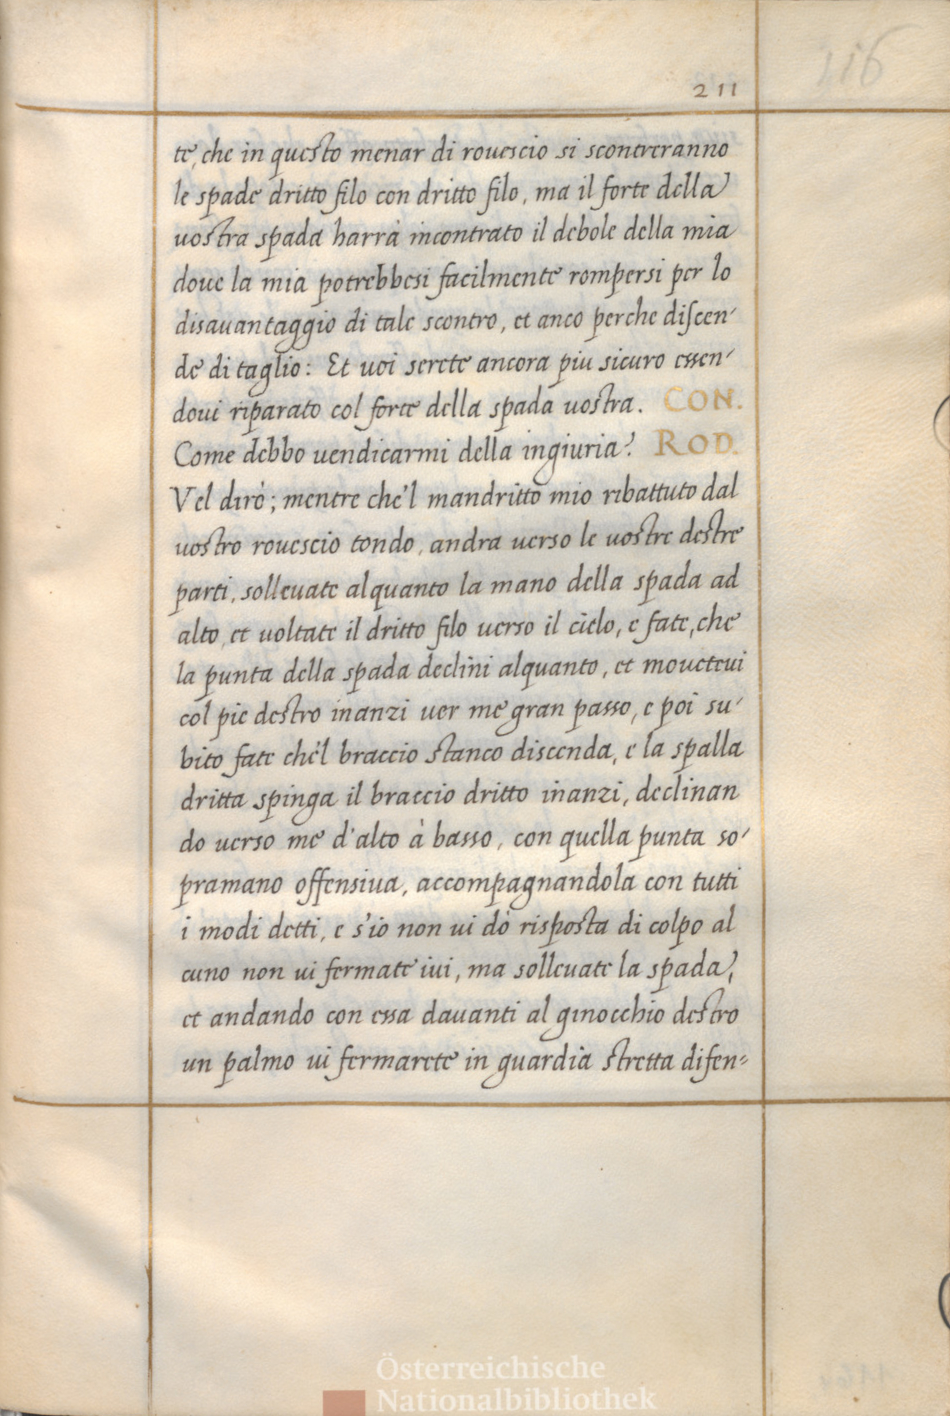 211
116
te, che in questo menar di rouescio si scontreranno
le spade dritto filo con dritto filo, ma il forte della
uostra spada harrà incontrato il debole della mia
doue la mia potrebbesi facilmente rompersi per lo
disauantaggio di tale scontro, et anco perche discen-
de di taglio: Et uoi serete ancora piu sicuro essen-
doui riparato col forte della spada uostra. CON.
Come debbo uendicarmi della ingiuria? ROD.
Vel dirò; mentre che'l mandritto mio ribattuto dal
uostro rouescio tondo, andra uerso le uostre destre
parti, solleuate alquanto la mano della spada ad
alto, et uoltate il dritto filo uerso il cielo, e fate, che
la punta della spada declini alquanto, et moueteui
col pie destro inanzi uer me gran passo, e poi su-
bito fate che'l braccio stanco discenda, e la spalla
dritta spinga il braccio dritto inanzi, declinan
do uerso me d'alto à basso, con quella punta so-
pramano offensiua, accompagnandola con tutti
i modi detti, e s'io non ui dò risposta di colpo al
cuno non ui fermate iui, ma solleuate la spada,
et andando con essa dauanti al ginocchio destro
un palmo ui fermarete in guardia stretta difen=
Österreichische
Nationalbibliothek